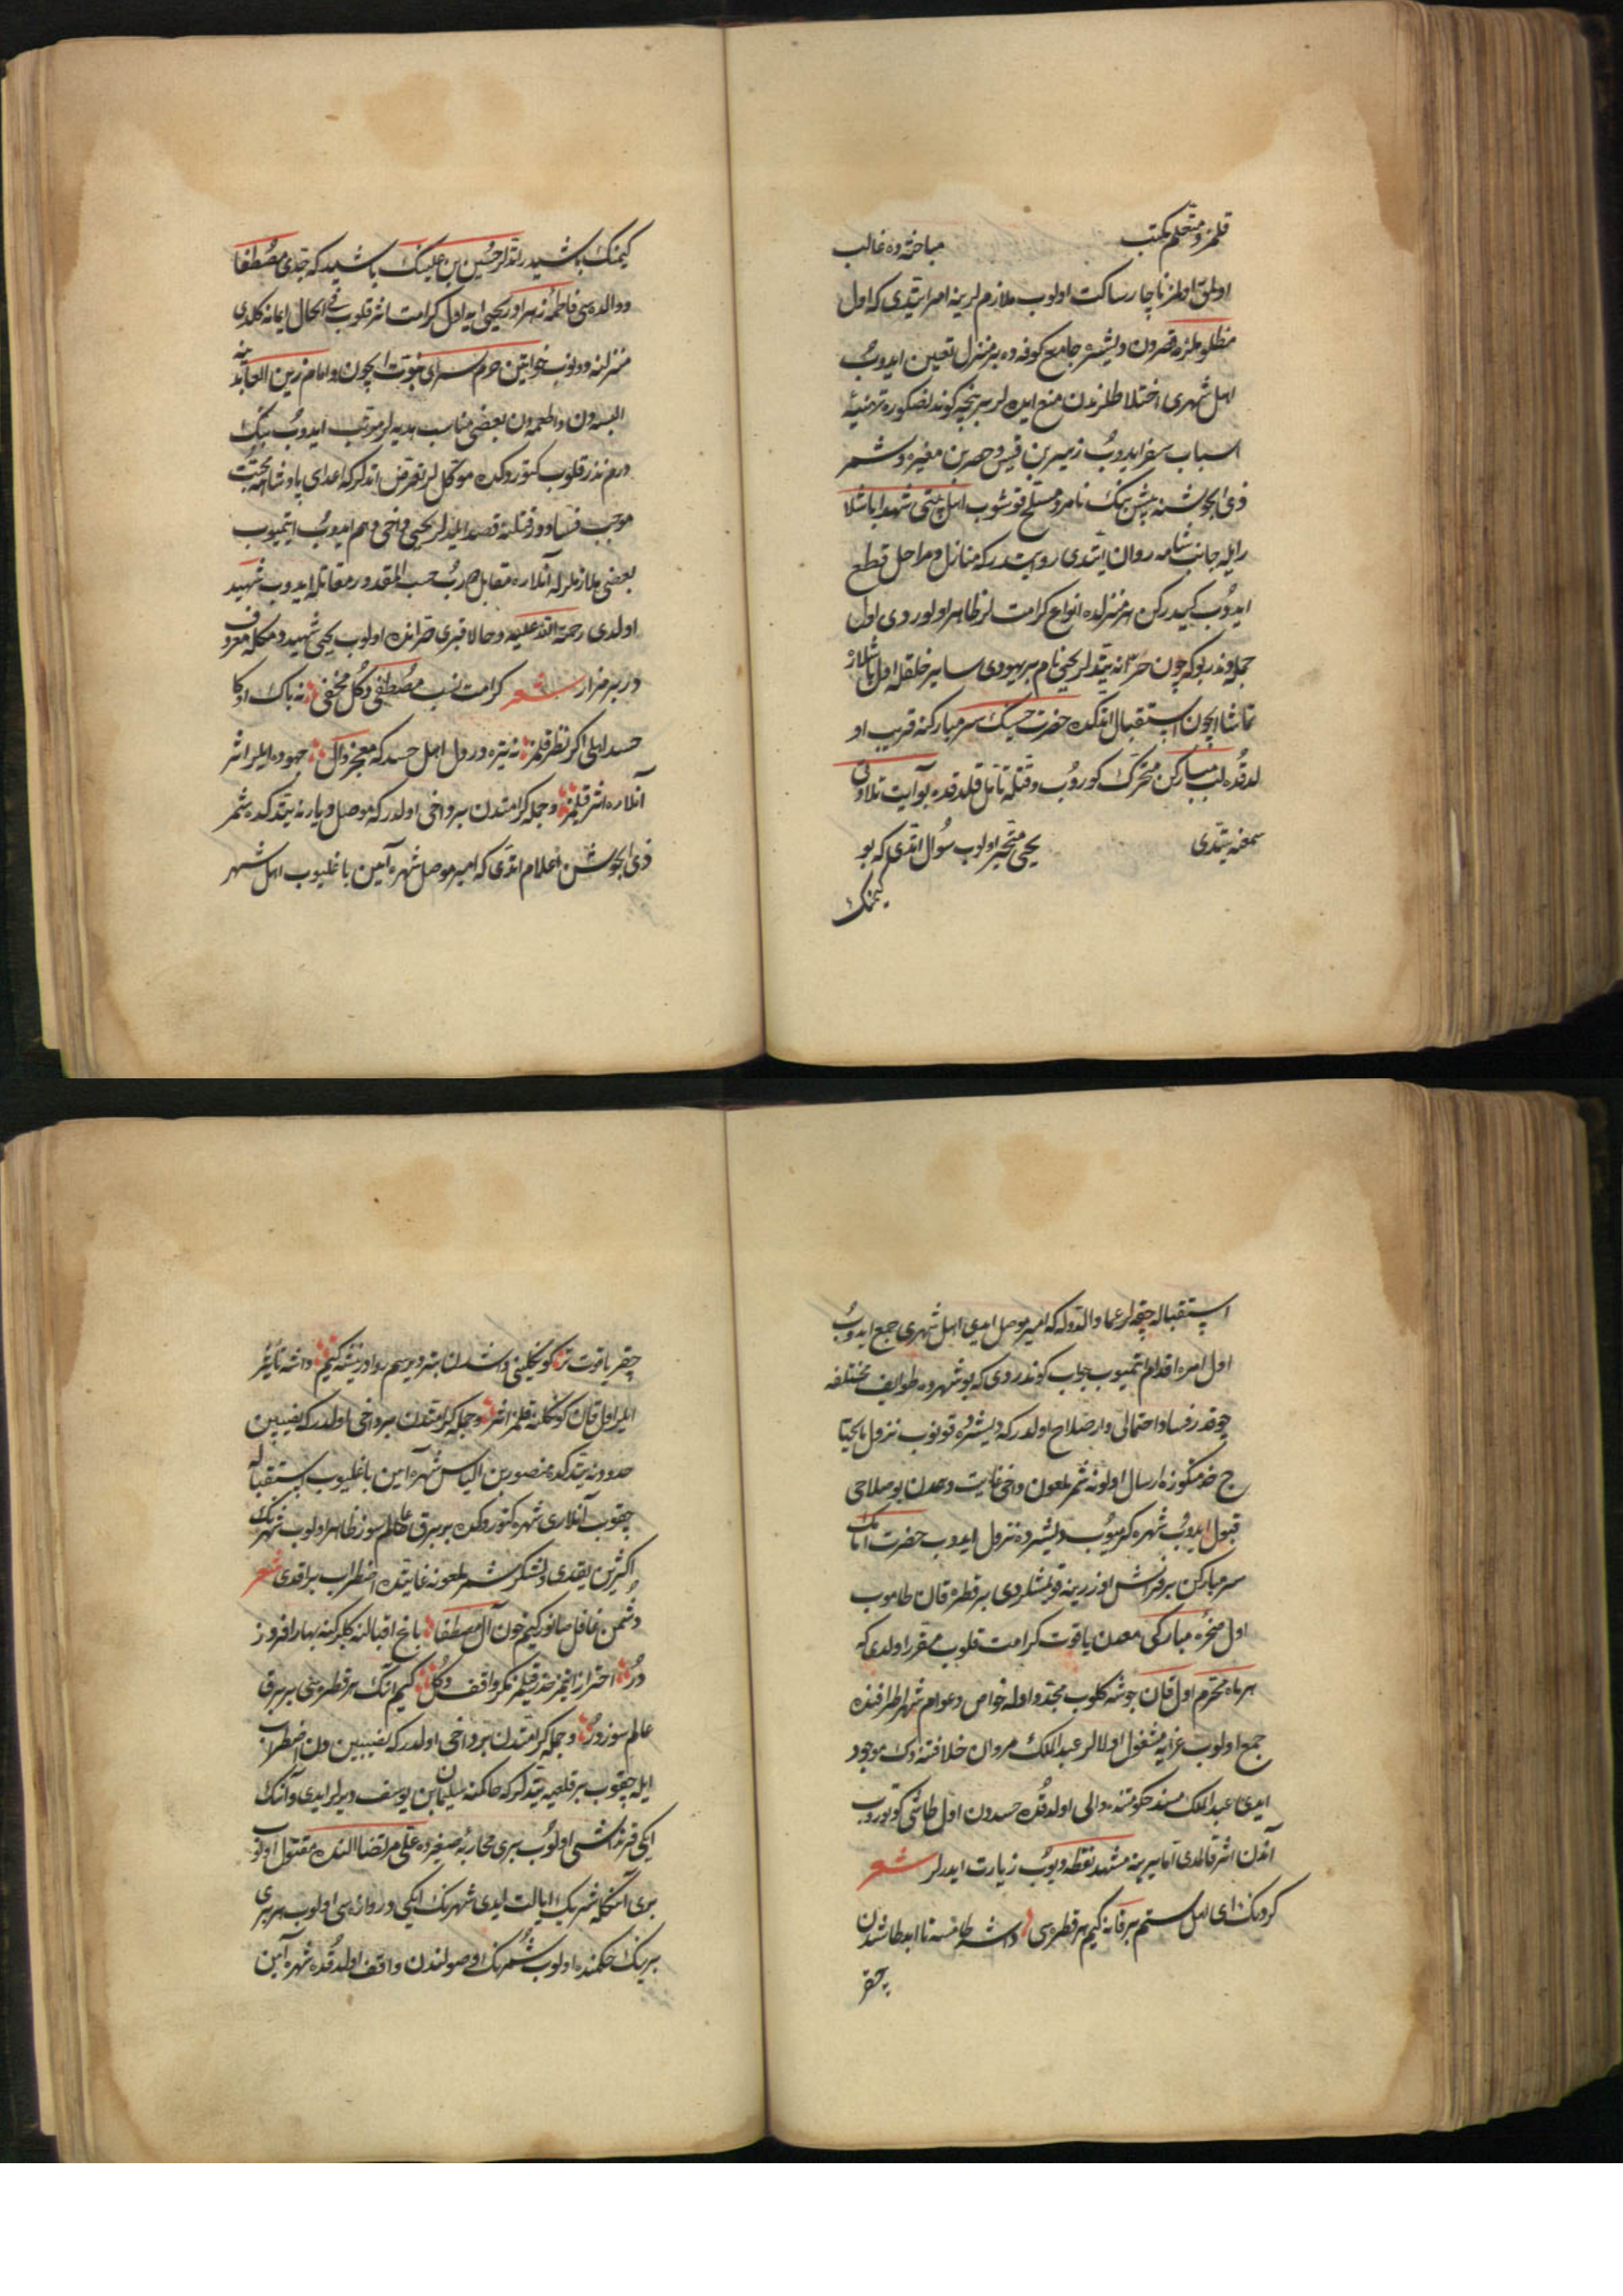 قلمز و متعلم مکتب مباحثه ده غالب
اولمق اولمز ناچار ساکت اولوب ملازملرینه امر ایتدی که اول
مظلوملری قصردن دیشره جامع کوفه ده بر منزل تعیین ایدوب
اهل شهری اختلاطلرندن منع ایده لر بر نیچه کوندنصکره تهیئه
اسباب سفر ایدوب زهیر بن قیس و حصرین مغیره و شمر
ذی الجوشنه بیش بیك نامرد مسلح قوشوب اهل بیتی شهدا باشلا
رایله جانب شامه روان ایتدی روایتدر که منازل و مراحل قطع
ایدوب کیدرکن هر منزلده انواع کرامتلر ظاهر اولوردی اول
جمله دندر بو که چون حرّانه یتدیلر یحیی نام بر یهودی سایر خلقله اول باشلار
تماشا ایچون استقبال ایتدکده حضرت حسینك سر مبارکنه قریب او
لدقده لب مبارکن متحرك کوروب دقتله تأمل قلدقده بو آیت تلاوتی
سمعنه یتدی یحیی متحیر اولوب سؤال ایتدی که بو
کیمنك
کیمنك باشیدر اتدیلر حسین بن علینك باشیدر که جدی مصطفا
و والده سی فاطمهٔ زهرادر یحیی ایه اول کرامت اثر قلوب فی الحال ایمانه کلدی
منزلنه دونوب خواتین حرم سرای نبوت ایچون و امام زین العابدینه
البسه دن و اطعمه دن بعضی مناسب هدیه لر مرتب ایدوب بیك
درم نذر قلوب کتوردکده موکللر تعرض اتدیلر که اعدای پادشاهه محبّت
موجب فساددر و قتلنه قصد ایلدیلر یحیی دخی وهم ایدوب ایتمیوب
بعضی ملازملرله آنلاره مقابل طروب حسب المقدور مقاتله ایدوب شهید
اولدی رحمة الله علیه و حالا قبری حرانده اولوب یحیی شهید دمکله معروف
در بر مزار شعر کرامت نسب مصطفی دکل مخفی نه باك اوکا
حسد اهلی اکر نظر قلمز نه یتره در دل اهل حسد که معجز دال جهوده ایلر اثر
آنلاره اثر قلمز و جمله کرامتدن بر داخی اولدر که موصل دیارنه یتدکده شمر
ذی الجوشن اعلام اتدی که امیر موصل شهره آیین باغلیوب اهل شهر
استقباله چقه لر عماد الدوله که امیر موصل ایدی اهل شهری جمع ایدوب
اول امره اقدام ایتمیوب جواب کوندردی که بو شهرده طوایف مختلفه
چوقدر فساد احتمالی وار صلاح اولدر که دیشره قونوب نزول مایحتا
ج خدمتکوزه ارسال اولونه شمر ملعون داخی غایت وهمدن بو صلاحی
قبول ایدوب شهره کرمیوب دیشرده نزول ایدوب حضرت امامك
سر مبارکن بر طاش اوزرینه قویمشلردی بر قطره قان طاموب
اول صخرهٔ مبارکی معدن یاقوت کرامت قلوب مقرر اولدی که
هر ماه محرم اول قان جوشه کلوب مجدد اوله خواص و عوام شهر اطرافنده
جمع اولوب عزایه مشغول اولالر عبد الملك مروان خلافتنه دك موجود
ایدی عبد الملك مسند حکومتنه والی اولدقده حسددن اول طاشی کوتوروب
آندن اثر قالمدی اما یرینه مشهد نقطه دیوب زیارت ایدرلر شعر
کردك ای اهل ستم بر قانه کیم هر قطره سی داشه طامسه تا ابد طاشدن
چقر
چقر یاقوت تر کوکلینی داشدن بتر دیرسم روادر نیشه کیم داشه تأثیر
ایلر اول قان کوکلنه قلمز اثر و جمله کرامتدن بر داخی اولدر که نصیبین
حدودنه یتدکده منصور بن الیاس شهره آیین باغلیوب استقباله
چقوب آنلاری شهره کتوردکده بر برق عالم سوز ظاهر اولوب شهرك
اکثرین یقدی و لشکر شمر ملعونه غایتده اضطراب براقدی شعر
دشمن غافل صانور کیم خون آل مصطفا باغ اقبالنه کلبرکنه بهار افروز
در احتراز ایتمز حذر قیلمز مکر واقف دکل کیم انك هر قطره سی بر برق
عالم سوزدر و جمله کرامتدن بر داخی اولدر که نصیبین دن اضطراب
ایله چقوب بر قلعه یه یتدیلر که حاکمنه سلیمان بن یوسف دیرلر ایدی و آنك
ایکی قرنداشی اولوب بری محاربهٔ صفینده علی مرتضا النده مقتول اولوب
بری آنکله شریك ایالت ایدی شهرك ایکی دروازه سی اولوب هر بری
برینك حکمنده اولوب شمرك وصولندن واقف اولدقده شهره آیین